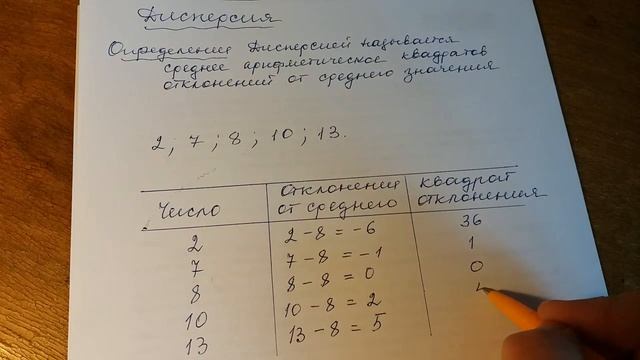 Дисперсия
Определение Дисперсией называется
среднее арифметическое квадратов
отклонений от среднего значения
2; 7; 8; 10; 13.
Число
отклонения от среднего
квадрат отклонения
2 2-8=-6 36
7 7-8=-1 1
8 8-8=0 0
10 10-8=2
13 13-8=5